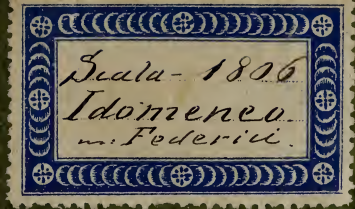 Scala - 1806
Idomeneo
m: Federici.